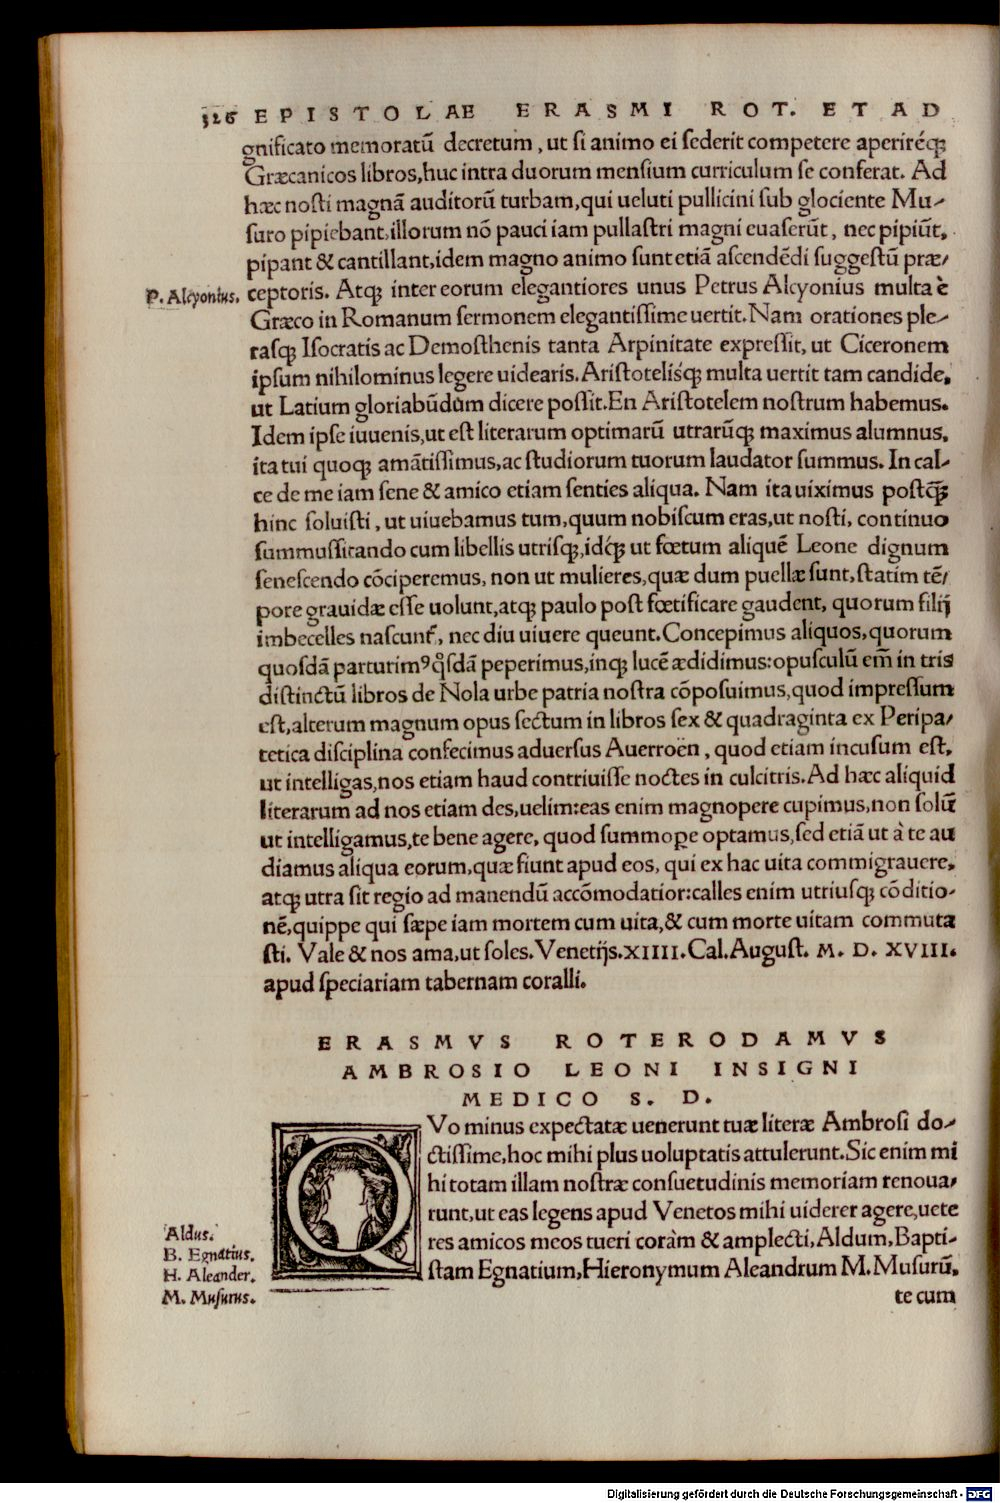 326 EPISTOLAE ERASMI ROT. ET AD
gnificato memoratũ decretum, ut si animo ei sederit competere aperiréqꝫ
Græcanicos libros, huc intra duorum mensium curriculum se conferat. Ad
hæc nosti magnã auditorũ turbam, qui ueluti pullicini sub glociente Mu-
suro pipiebant, illorum nõ pauci iam pullastri magni euaserũt, nec pipiũt,
pipant & cantillant, idem magno animo sunt etiã ascendẽdi suggestũ præ/
P. Alcyonius. ceptoris. Atqꝫ inter eorum elegantiores unus Petrus Alcyonius multa è
Græco in Romanum sermonem elegantissime uertit. Nam orationes ple-
rasqꝫ Isocratis ac Demosthenis tanta Arpinitate expressit, ut Ciceronem
ipsum nihilominus legere uidearis. Aristotelisq́ꝫ multa uertit tam candide,
ut Latium gloriabũdum dicere possit. En Aristotelem nostrum habemus.
Idem ipse iuuenis, ut est literarum optimarũ utrarũqꝫ maximus alumnus,
ita tui quoqꝫ amãtissimus, ac studiorum tuorum laudator summus. In cal-
ce de me iam sene & amico etiam senties aliqua. Nam ita uiximus postq̃ꝫ
hinc soluisti, ut uiuebamus tum, quum nobiscum eras, ut nosti, continuo
summussitando cum libellis utrisqꝫ, idq́ꝫ ut fœtum aliquẽ Leone dignum
senescendo cõciperemus, non ut mulieres, quæ dum puellæ sunt, statim tẽ/
pore grauidæ esse uolunt, atqꝫ paulo post fœtificare gaudent, quorum filij
imbecelles nascunt᷑, nec diu uiuere queunt. Concepimus aliquos, quorum
quosdã parturimꝰ qͦsdã peperimus, inqꝫ lucẽ ædidimus: opusculũ em̃ in tris
distinctũ libros de Nola urbe patria nostra cõposuimus, quod impressum
est, alterum magnum opus sectum in libros sex & quadraginta ex Peripa/
tetica disciplina confecimus aduersus Auerroën, quod etiam incusum est,
ut intelligas, nos etiam haud contriuisse noctes in culcitris. Ad hæc aliquid
literarum ad nos etiam des, uelim: eas enim magnopere cupimus, non solũ
ut intelligamus, te bene agere, quod summoꝑe optamus, sed etiã ut à te au
diamus aliqua eorum, quæ fiunt apud eos, qui ex hac uita commigrauere,
atqꝫ utra sit regio ad manendũ accõmodatior: calles enim utriusqꝫ cõditio-
nẽ, quippe qui sæpe iam mortem cum uita, & cum morte uitam commuta
sti. Vale & nos ama, ut soles. Venetijs. XIIII. Cal. August. M. D. XVIII.
apud speciariam tabernam coralli.
ERASMVS ROTERODAMVS
AMBROSIO LEONI INSIGNI
MEDICO S. D.
QVo minus expectatæ uenerunt tuæ literæ Ambrosi do-
ctissime, hoc mihi plus uoluptatis attulerunt. Sic enim mi
hi totam illam nostræ consuetudinis memoriam renoua/
runt, ut eas legens apud Venetos mihi uiderer agere, uete
Aldus. res amicos meos tueri coràm & amplecti, Aldum, Bapti-
B. Egnatius. stam Egnatium, Hieronymum Aleandrum M. Musurũ,
H. Aleander.
M. Musurus.
te cum
Digitalisierung gefördert durch die Deutsche Forschungsgemeinschaft - DFG